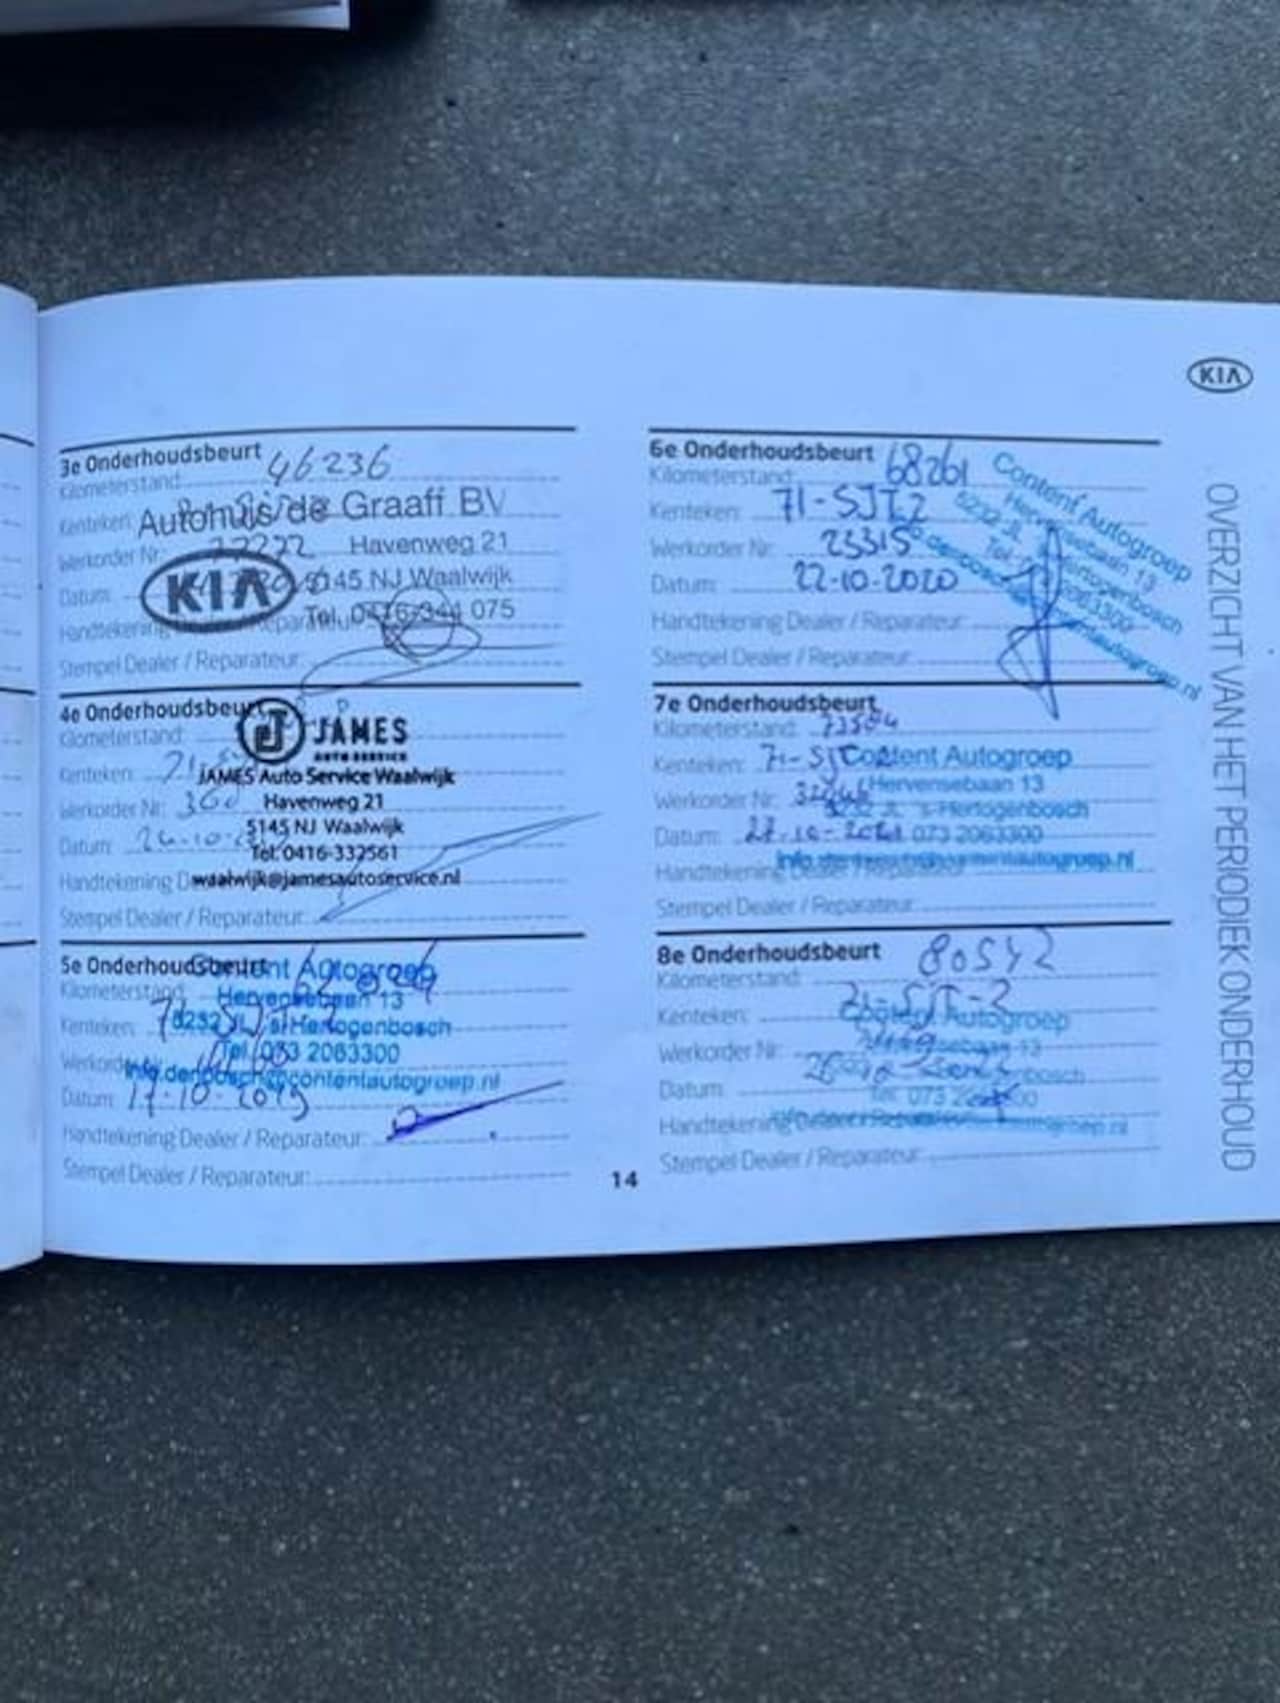 KIA
OVERZICHT VAN HET PERIODIEK ONDERHOUD
3e Onderhoudsbeurt 46236
Kilometerstand:
Kenteken: Autohuis de Graaff BV
Werkorder Nr: Havenweg 21
KIA
Datum: 5145 NJ Waalwijk
Tel. 0416-344 075
Handtekening Dealer / Reparateur:
Stempel Dealer / Reparateur:
4e Onderhoudsbeurt
Kilometerstand: JAMES
AUTO SERVICE
Kenteken: JAMES Auto Service Waalwijk
Werkorder Nr: Havenweg 21
5145 NJ Waalwijk
Datum: Tel: 0416-332561
Handtekening waalwijk@jamesautoservice.nl
Stempel Dealer / Reparateur:
5e Onderhoudsbeurt Content Autogroep
Kilometerstand: Hervensebaan 13
Kenteken: 5232 JL 's-Hertogenbosch
Werkorder Tel. 073 2063300
info.denbosch@contentautogroep.nl
Datum: 17-10-2019
Handtekening Dealer / Reparateur:
Stempel Dealer / Reparateur:
6e Onderhoudsbeurt 68261
Kilometerstand:
Kenteken: 71-SJT-2
Werkorder Nr: 23315
Datum: 22-10-2020
Handtekening Dealer / Reparateur:
Stempel Dealer / Reparateur:
Content Autogroep
Hervensebaan 13
5232 JL 's-Hertogenbosch
Tel. 073 2063300
info.denbosch@contentautogroep.nl
7e Onderhoudsbeurt
Kilometerstand: 73504
Kenteken: 71-SJT Content Autogroep
Werkorder Nr: Hervensebaan 13
5232 JL 's-Hertogenbosch
Datum: 27-10-2021 073 2063300
info.denbosch@contentautogroep.nl
Handtekening Dealer / Reparateur:
Stempel Dealer / Reparateur:
8e Onderhoudsbeurt 80542
Kilometerstand:
Kenteken: 71-SJT-2
Content Autogroep
Werkorder Nr: Hervensebaan 13
Datum:
Tel. 073 2063300
Handtekening Dealer / Reparateur:
Stempel Dealer / Reparateur:
14